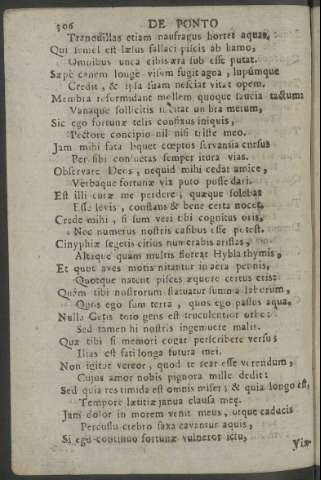 306 DE PONTO
Tranquillas etiam naufragus horret aquas,
Qui semel est læsus fallaci piscis ab hamo,
Omnibus unca cibis æra sub esse putat.
Sæpe canem longè visum fugit agna, lupúmque
Credit, & ipsa suam nesciat vitat opem.
Membra reformidant mollem quoque saucia tactum:
Vanaque sollicitis incitat umbra metum,
Sic ego fortunæ telis confixus iniquis,
Pectore concipio nil nisi triste meo.
Jam mihi fata liquet cœptos servansia cursus
Per sibi consuetas semper itura vias.
Observare Deos, nequid mihi cedat amice,
Verbaque fortunæ vix puto posse dari.
Est illi curæ me perdere; quæque solebat
Esse levis, constans & bene certa nocet.
Crede mihi, si sum veri tibi cognitus oris,
Nec numerus nostris casibus esse potest.
Cinyphiæ segetis citius numerabis aristas,
Altaque quàm multis floreat Hybla thymis,
Et quot aves motis nitantur in aera pennis,
Quotque natent pisces æquore certus eris:
Quàm tibi nostrorum statuatur summa laborum,
Quos ego sum terra, quos ego passus aqua.
Nulla Getis toto gens est truculentior orbe:
Sed tamen hi nostris ingemuere malis.
Quæ tibi si memori coger perscribere versus
Ilias est fati longa futura mei.
Non igitur vereor, quod te rear esse verendum,
Cujus amor nobis pignora mille dedit:
Sed quia res timida est omnis miser; & quia longo est,
Tempore lætitiæ janua clausa meę.
Jam dolor in morem venit meus, utque caducis
Percussu crebro saxa cavantur aquis,
Si ego continuo fortunæ vulneror ictu,
Vix-